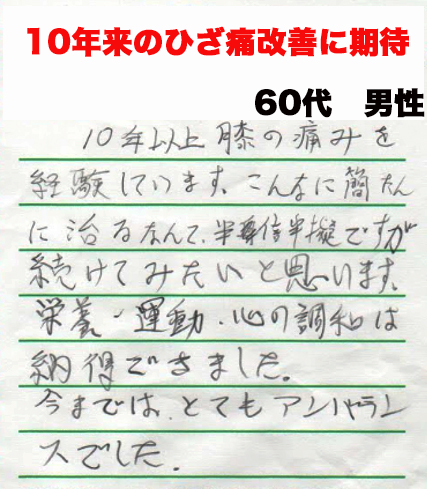 10年来のひざ痛改善に期待
60代 男性
10年以上膝の痛みを
経験しています。こんなに簡たん
に治るなんて、半信半擬ですが
続けてみたいと思います。
栄養・運動・心の調和は
納得できました。
今までは、とてもアンバラン
スでした。